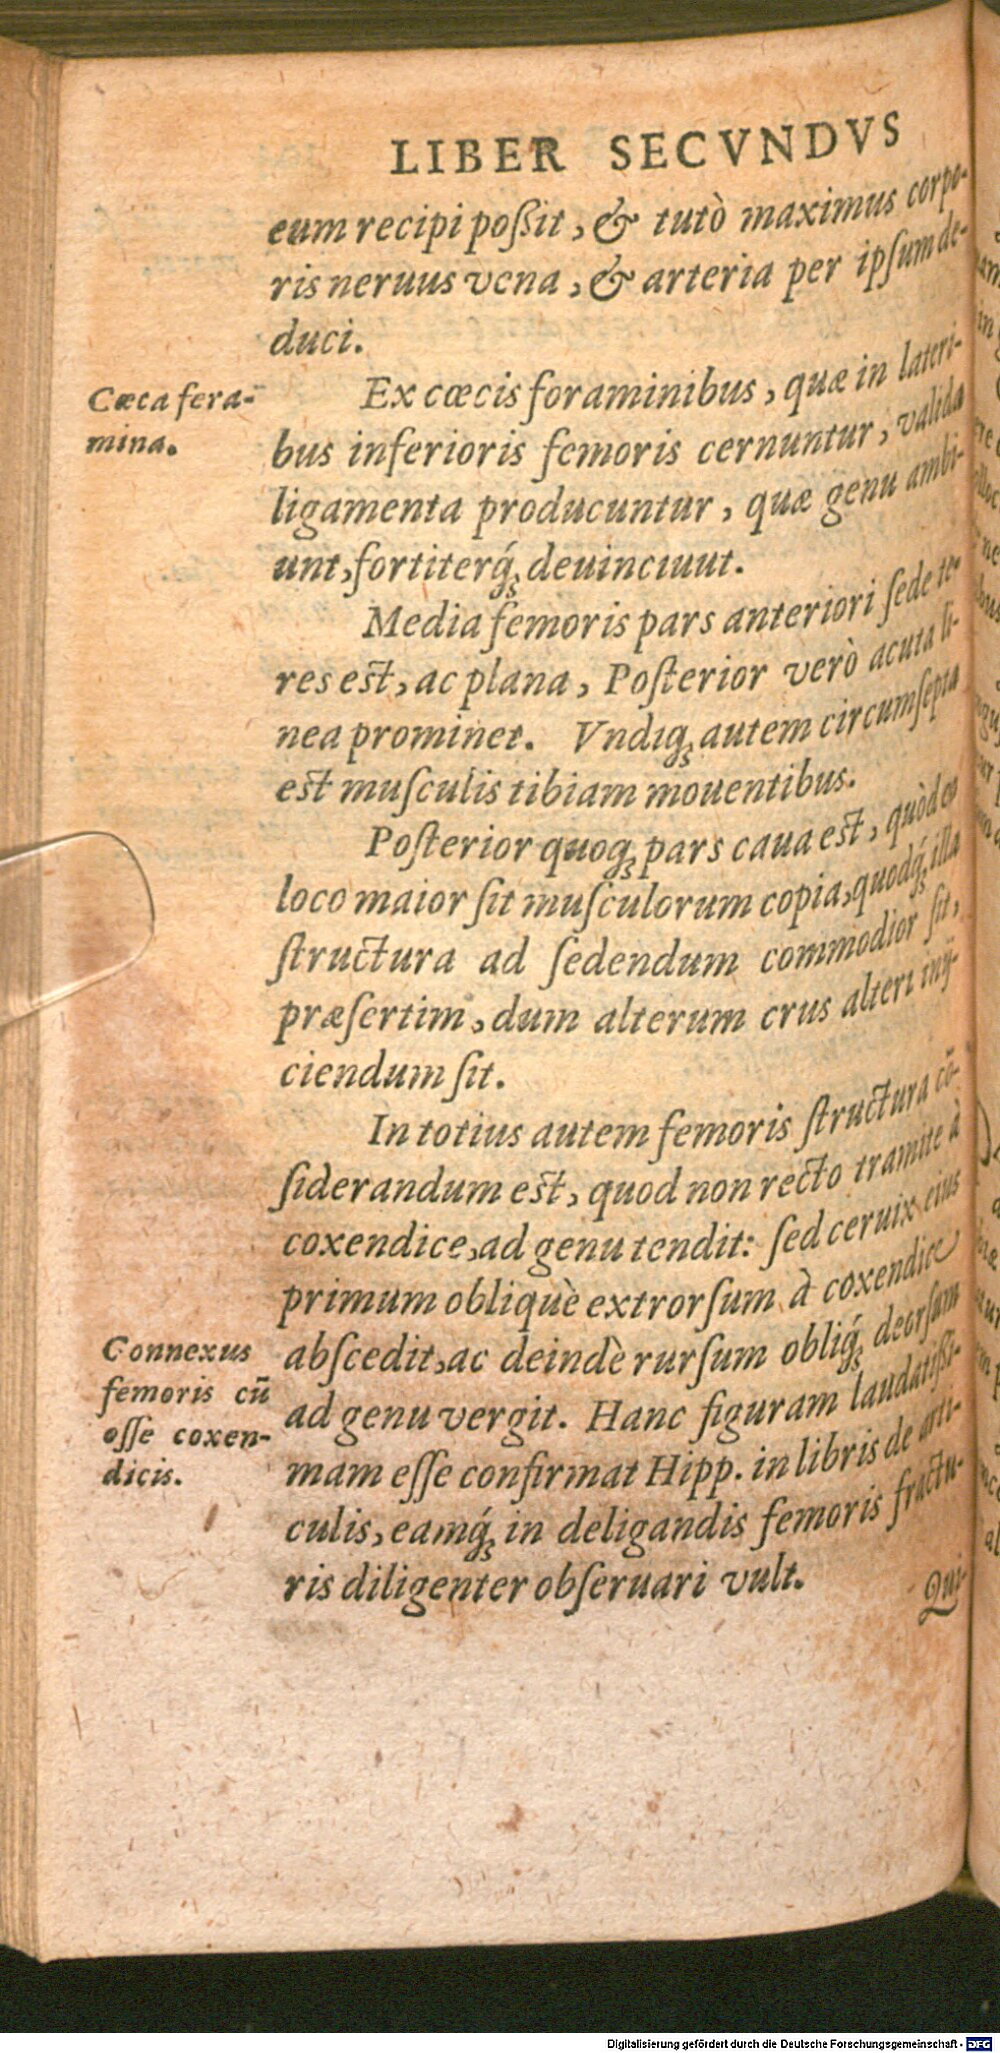 LIBER SECVNDVS
eum recipi poßit, & tutò maximus corpo-
ris neruus vena, & arteria per ipſum de-
duci.
Cæca fera-
mina.
Ex cœcis foraminibus, quæ in lateri-
bus inferioris femoris cernuntur, valida
ligamenta producuntur, quæ genu ambi-
unt, fortiterq́ꝫ deuinciuut.
Media femoris pars anteriori ſede te-
res eſt, ac plana, Poſterior verò acuta li-
nea prominet. Vndiqꝫ autem circumſepta
eſt muſculis tibiam mouentibus.
Poſterior quoqꝫ pars caua eſt, quòd eo
loco maior ſit muſculorum copia, quodq́ꝫ illa
ſtructura ad ſedendum commodior ſit,
præſertim, dum alterum crus alteri inij-
ciendum ſit.
In totius autem femoris ſtructura cō-
ſiderandum eſt, quod non recto tramite à
coxendice, ad genu tendit: ſed ceruix eius
primum obliquè extrorſum à coxendice
abſcedit, ac deindè rurſum obliq́ꝫ deorſum
ad genu vergit. Hanc figuram laudatißi-
mam eſſe confirmat Hipp. in libris de arti-
culis, eamq́ꝫ in deligandis femoris fractu-
ris diligenter obſeruari vult.
Connexus
femoris cū
oſſe coxen-
dicis.
Qui-
Digitalisierung gefördert durch die Deutsche Forschungsgemeinschaft - DFG